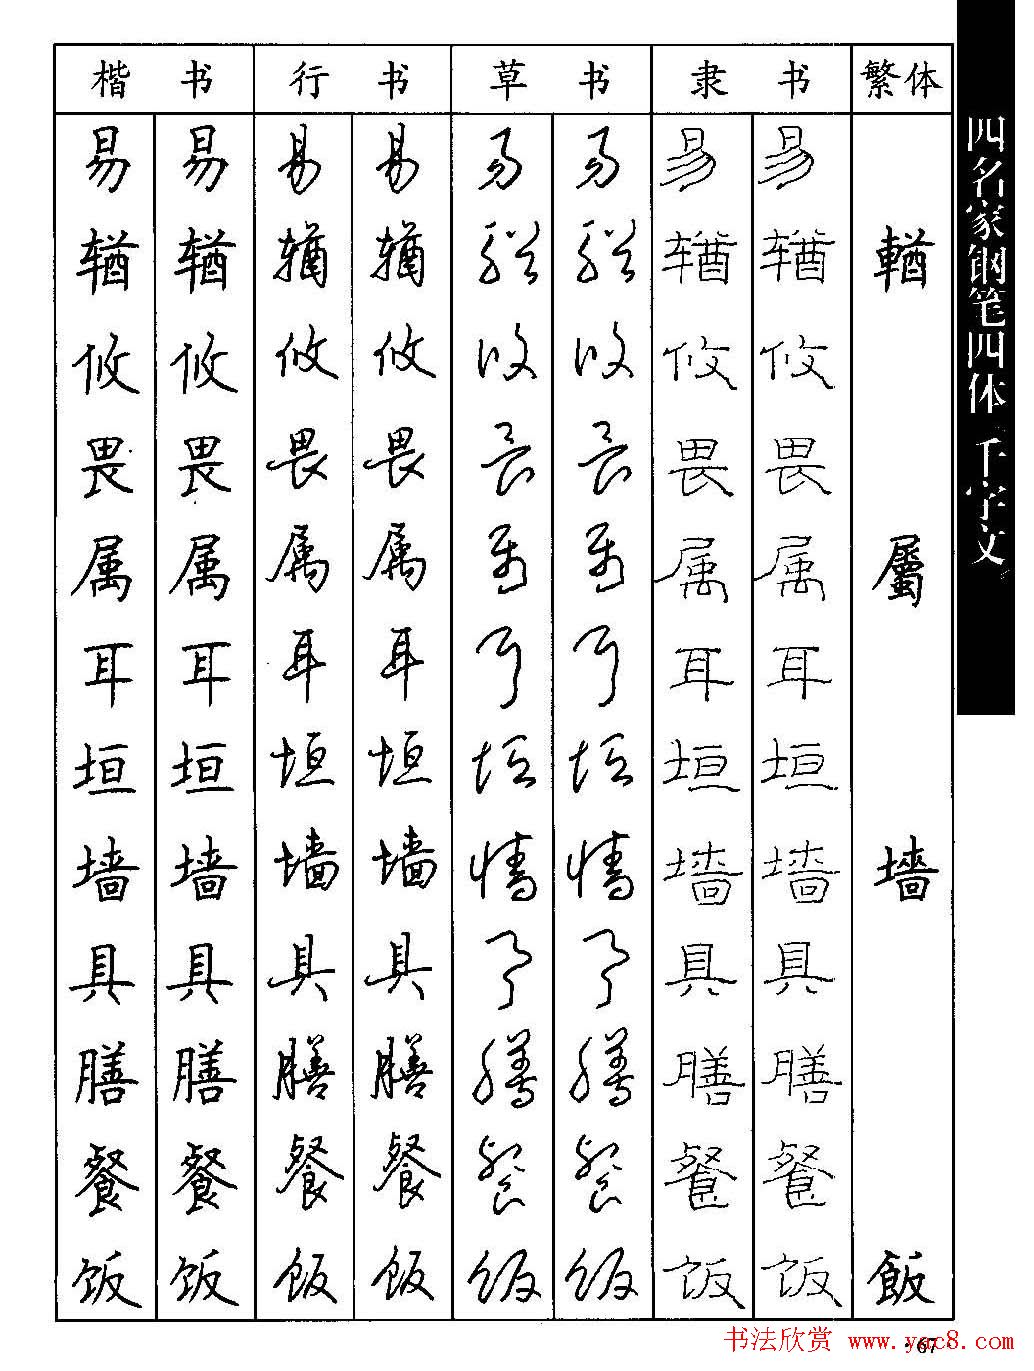 楷书 行书 草书 隶书 繁体
易 易 易 易 易 易 易 易
𬨎 𬨎 𬨎 𬨎 𬨎 𬨎 𬨎 𬨎 輶
攸 攸 攸 攸 攸 攸 攸 攸
畏 畏 畏 畏 畏 畏 畏 畏
属 属 属 属 属 属 属 属 屬
耳 耳 耳 耳 耳 耳 耳 耳
垣 垣 垣 垣 垣 垣 垣 垣
墙 墙 墙 墙 墙 墙 墙 墙 墻
具 具 具 具 具 具 具 具
膳 膳 膳 膳 膳 膳 膳 膳
餐 餐 餐 餐 餐 餐 餐 餐
饭 饭 饭 饭 饭 饭 饭 饭 飯
四名家钢笔四体 千字文
·67·
书法欣赏 www.yac8.com